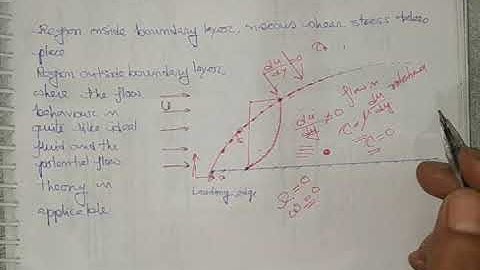 Region inside boundary layer, viscous shear stress takes
place
Region outside boundary layer
where the flow
behaviour is
quite like ideal
fluid and the
potential flow
theory is
applicable
U
Leading edge
du/dy = 0
τ
du/dy ≠ 0
flow is
τ = μ du/dy
τ = 0
= 0
ω = 0